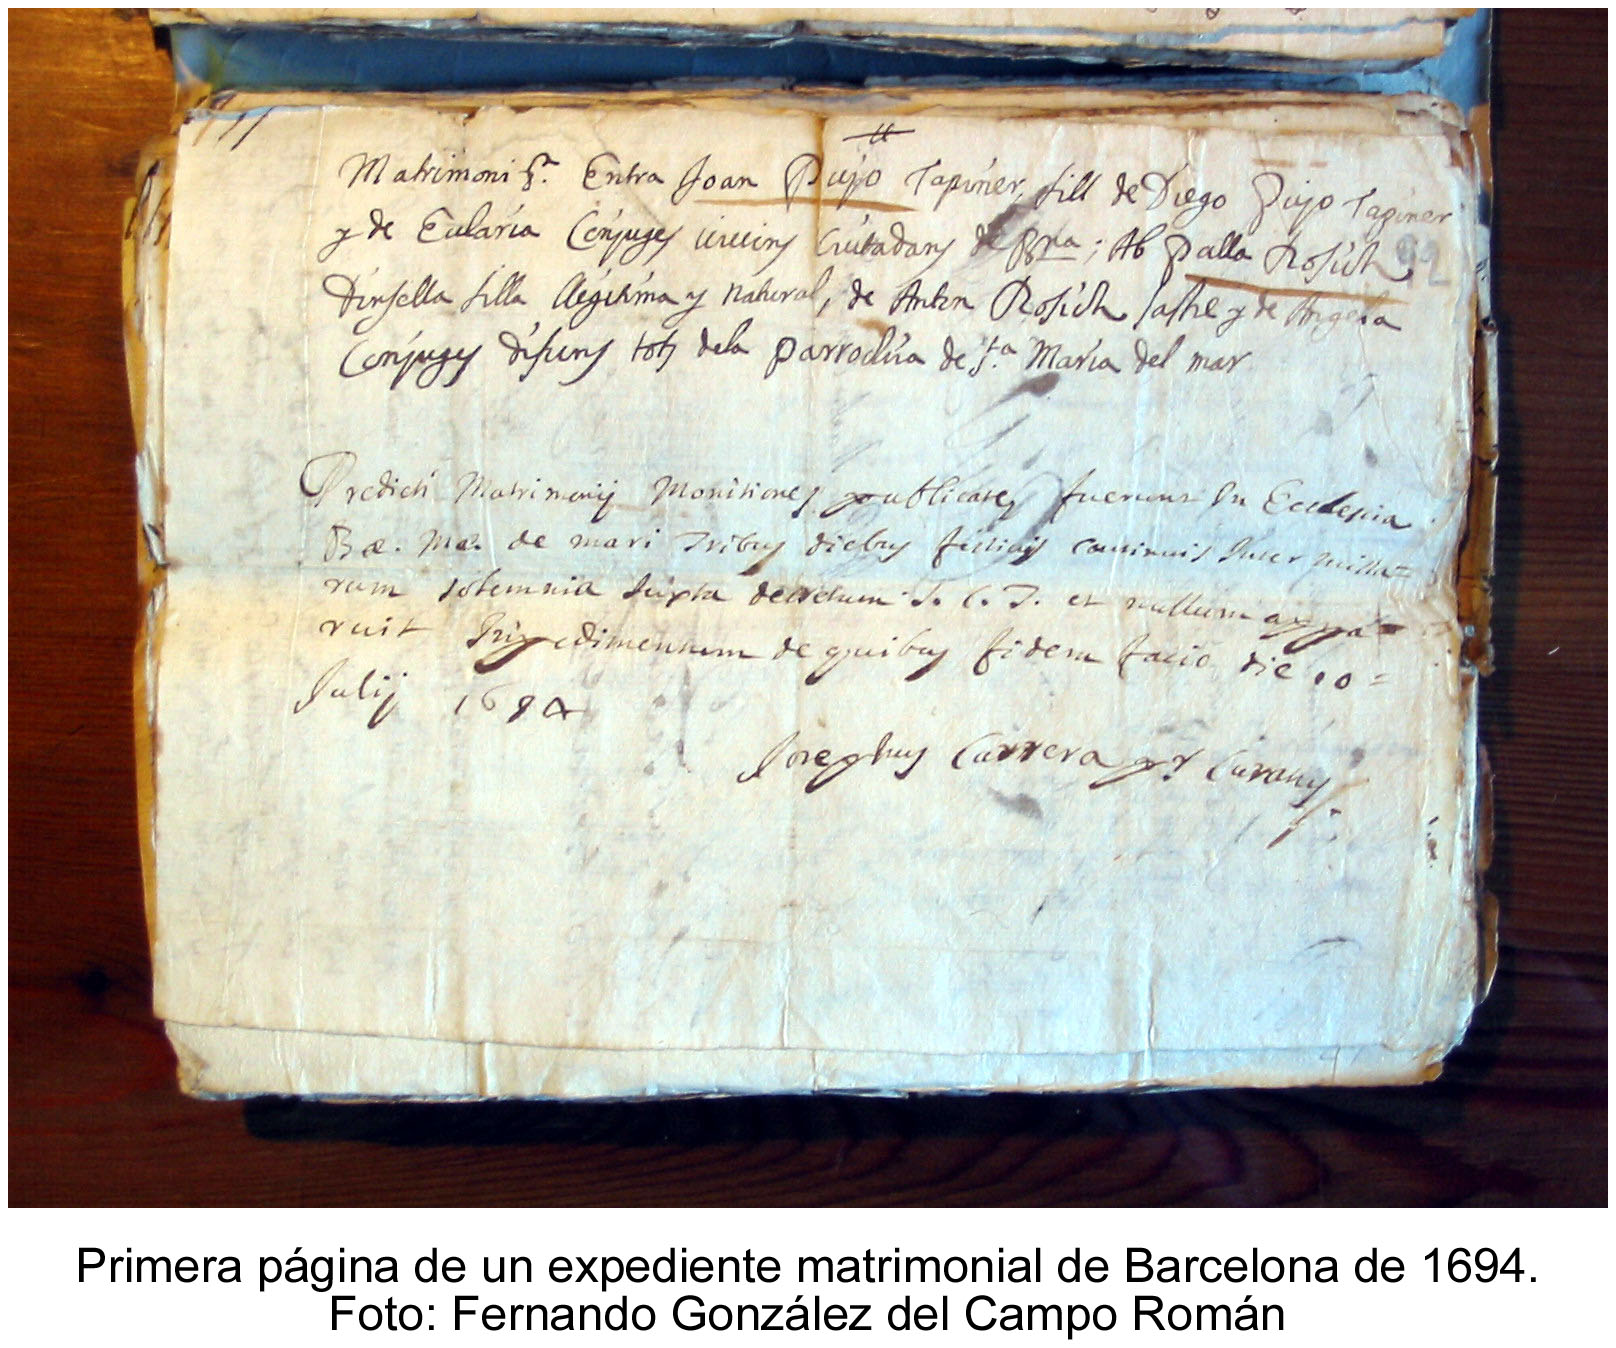 Matrimoni fa. Entra Joan Pujo Tapiner, fill de Diego Pujo Tapiner
y de Eularia Conjuges vivins Ciutadans de Bna; Ab Palla Rosich
Dinsella filla llegitima y natural, de Anton Rosich sastre y de Angela
Conjuges difuns tots de la parrochia de Sta Maria del mar
92
Predicti Matrimonij Monitiones publicates fuerunt In Ecclesia
Bæ. Mæ. de mari Tribus diebus festivis continuis Inter missa=
rum solemnia Juxta decretum S. C. T. et nullum appa=
ruit Impedimentum de quibus fidem facio die 10=
Julij 1694
Josephus Carrera pr. Curatus
Primera página de un expediente matrimonial de Barcelona de 1694.
Foto: Fernando González del Campo Román